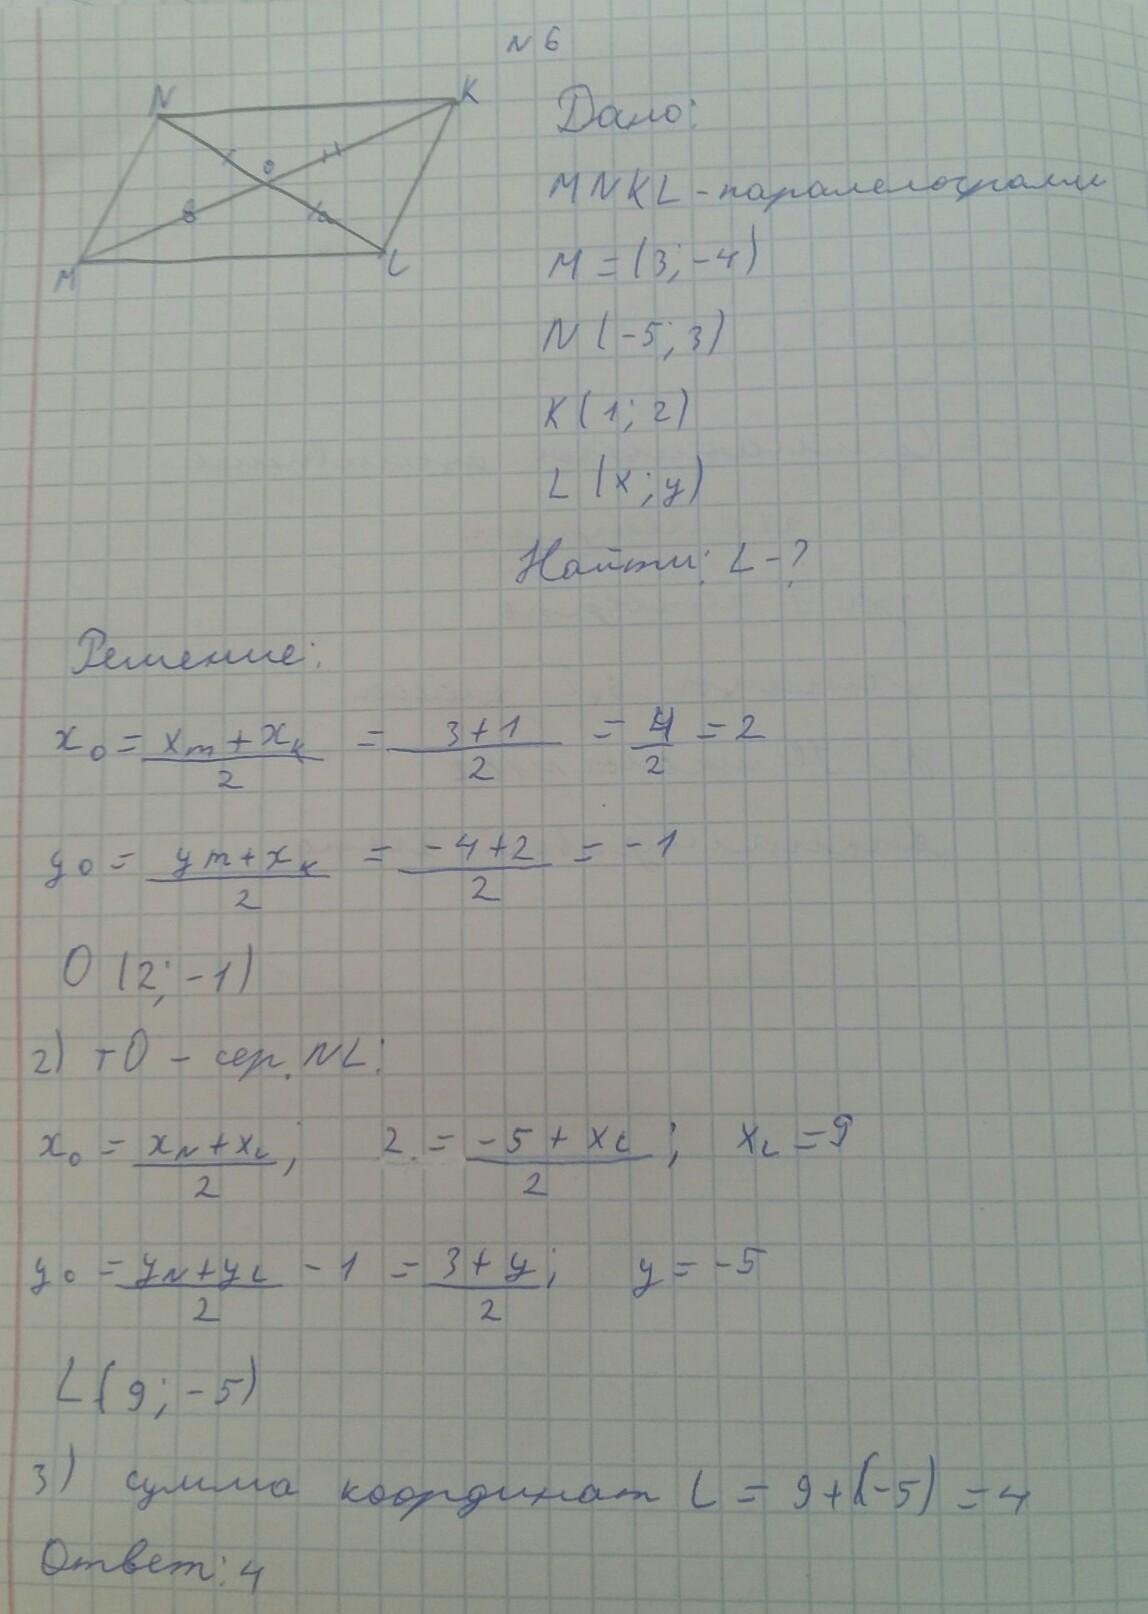 N 6
N
K
O
M
L
Дано:
MNKL - паралелограмм
M = (3; -4)
N (-5; 3)
K (1; 2)
L (x; y)
Найти: L - ?
Решение:
x₀ = (xm + xк)/2 = (3 + 1)/2 = 4/2 = 2
y₀ = (ym + xк)/2 = (-4 + 2)/2 = -1
O (2; -1)
2) т O - сер. NL:
x₀ = (xN + xL)/2; 2 = (-5 + xL)/2; xL = 9
y₀ = (yN + yL)/2 - 1 = (3 + y)/2; y = -5
L (9; -5)
3) сумма координат L = 9 + (-5) = 4
Ответ: 4